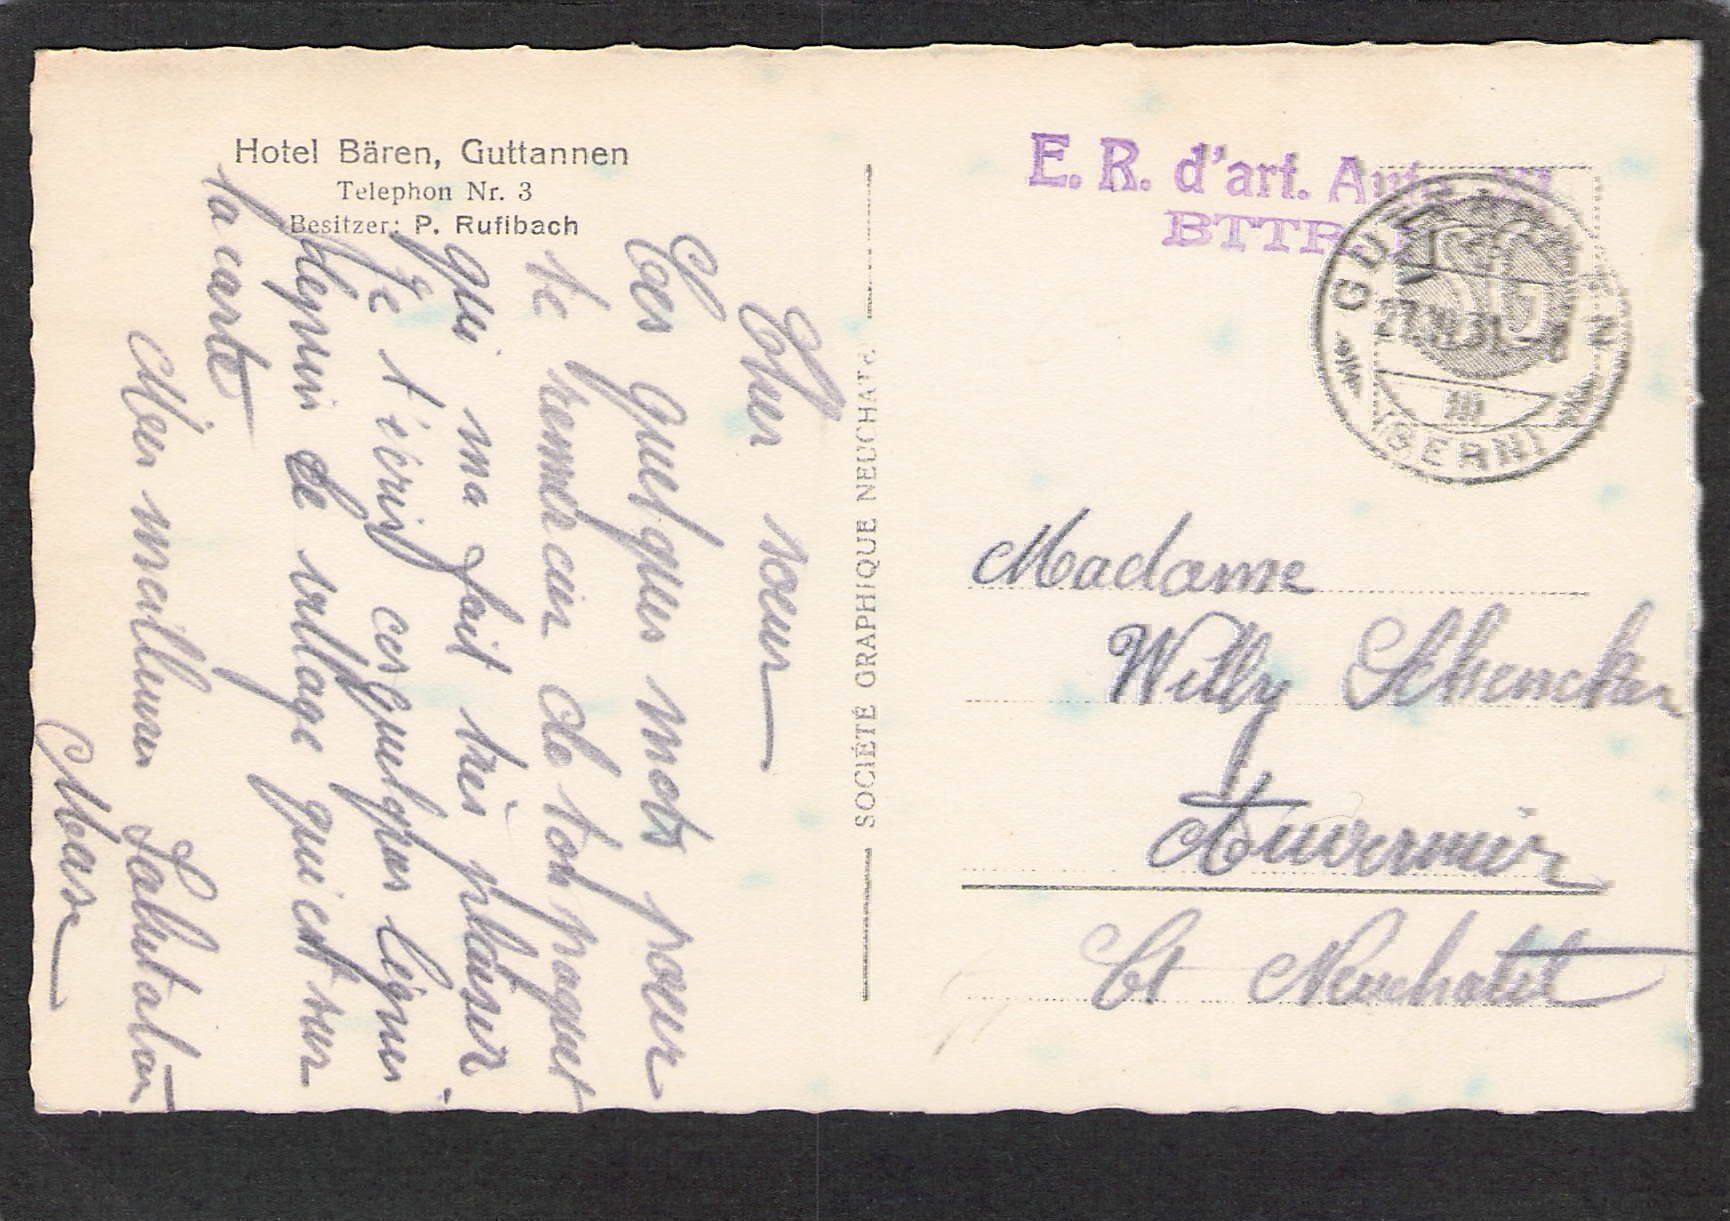 Hotel Bären, Guttannen
Telephon Nr. 3
Besitzer: P. Rufibach
Cher sœur
Ces quelques mots pour
te remercier de ton paquet
qui ma fait très plaiser.
Je t'écris ces quelques lignes
depuis de village qui est sur
la carte
Mes meilleures Salutation
SOCIÉTÉ GRAPHIQUE NEUCHATEL
E. R. d'art. Auto
BTTR
(BERN)
Madame
Willy Schencker
Auvernier
Ct Neuchatel